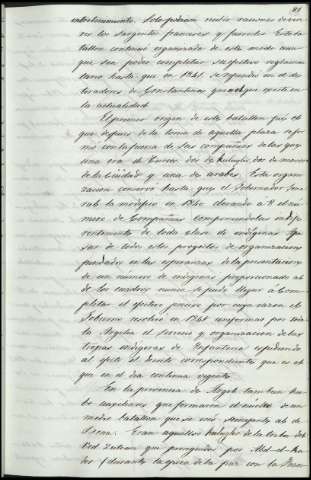 81
entretenimiento. Solo podian recibir raciones de vive-
res los sargentos franceses y furrieles. Este ba-
tallon continuó organizado de este modo aun-
que sin poder completar su efectivo reglamen-
tario hasta que en 1841 se refundió en el de ti-
radores de Constantina que existe en
la actualidad.
El primer origen de este batallon fué el
que despues de la toma de aquella plaza se for-
mó con la fuerza de seis compañias de las que
una era de Turcos dos de kuluglis dos de moros
de la Ciudad y una de arabes. Esta organi-
zacion conservó hasta que el Gobernador Gene-
ral la modificó en 1840 elevando á 8 el nú-
mero de Compañias comprendidas indife-
rentemente de toda clase de indigenas. Ape-
sar de todos estos proyectos de organizacion
fundados en las esperanzas de la presentacion
de un número de indigenas proporcionado al
de los cuadros nunca se pudo llegar á Com-
pletar el efectivo preciso por cuya razon el
Gobierno resolvió en 1841 uniformar por toda
la Argelia el servicio y organizacion de las
tropas indigenas de Infanteria expidiendo
al efecto el decreto correspondiente que es el
que en el dia continua vigente.
En la provincia de Argel tambien hu-
bo auxiliares que formaron el núcleo de un
medio batallon que se creó semejante al de
Oran. Eran aquellos kuluglis de la tribu del
Oed Zeitoun que perseguidos por Abd-el-Ka-
der (durante la epoca de la paz con la Fran-